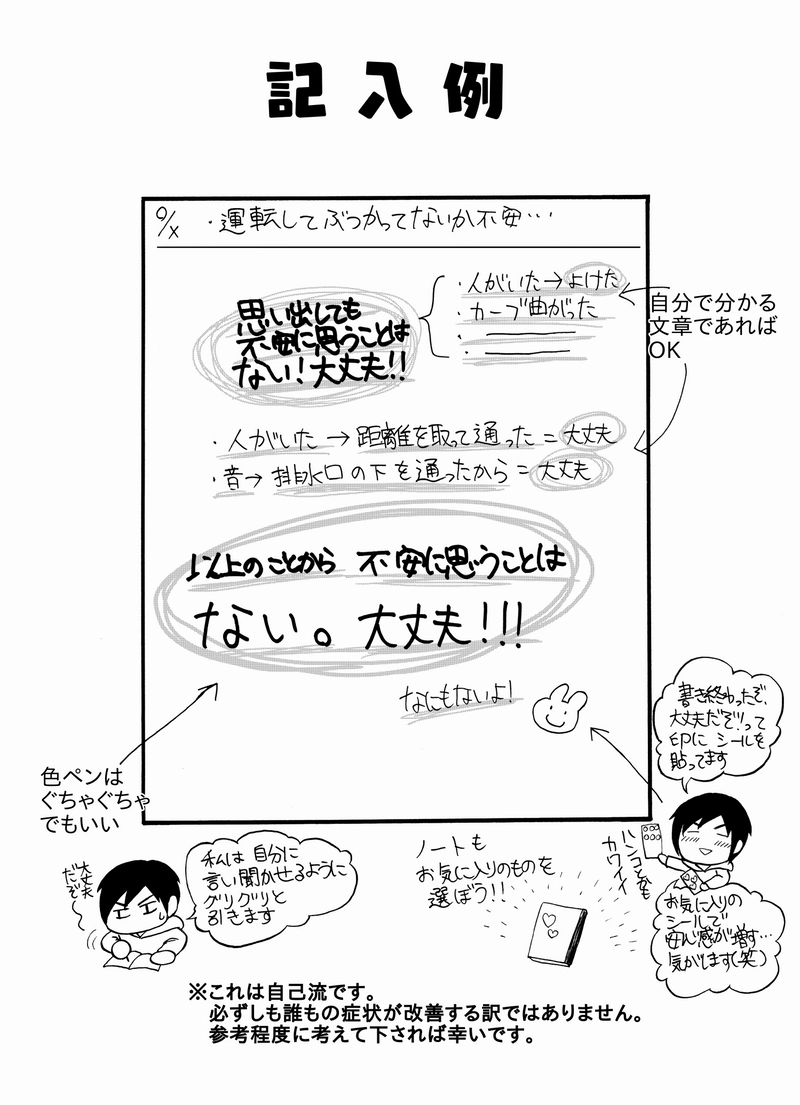 記入例
○/× ・運転してぶつかってないか不安…
・人がいた→よけた
・カーブ曲がった
・
・
思い出しても
不安に思うことは
ない!大丈夫!!
自分で分かる
文章であれば
OK
・人がいた→距離を取って通った=大丈夫
・音→排水口の下を通ったから=大丈夫
以上のことから 不安に思うことは
ない。大丈夫!!!
なにもないよ!
色ペンは
ぐちゃぐちゃ
でもいい
書き終わったぞ、
大丈夫だぞ!って
印に シールを
貼ってます
ハンコとかも
カワイイ
お気に入りの
シールで
安心感が増す…
気がします(笑)
大丈夫
だぞ
私は自分に
言い聞かせるように
グリグリと
引きます
ノートも
お気に入りのものを
選ぼう!!
※これは自己流です。
必ずしも誰もの症状が改善する訳ではありません。
参考程度に考えて下されば幸いです。